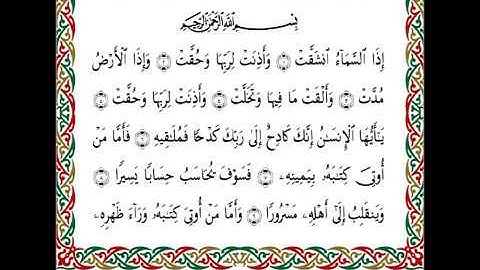 بِسْمِ اللَّهِ الرَّحْمَٰنِ الرَّحِيمِ
إِذَا السَّمَآءُ انشَقَّتْ ١ وَأَذِنَتْ لِرَبِّهَا وَحُقَّتْ ٢ وَإِذَا الْأَرْضُ
مُدَّتْ ٣ وَأَلْقَتْ مَا فِيهَا وَتَخَلَّتْ ٤ وَأَذِنَتْ لِرَبِّهَا وَحُقَّتْ ٥
يَٰٓأَيُّهَا الْإِنسَٰنُ إِنَّكَ كَادِحٌ إِلَىٰ رَبِّكَ كَدْحًا فَمُلَٰقِيهِ ٦ فَأَمَّا مَنْ
أُوتِىَ كِتَٰبَهُۥ بِيَمِينِهِۦ ٧ فَسَوْفَ يُحَاسَبُ حِسَابًا يَسِيرًا ٨
وَيَنقَلِبُ إِلَىٰٓ أَهْلِهِۦ مَسْرُورًا ٩ وَأَمَّا مَنْ أُوتِىَ كِتَٰبَهُۥ وَرَآءَ ظَهْرِهِۦ